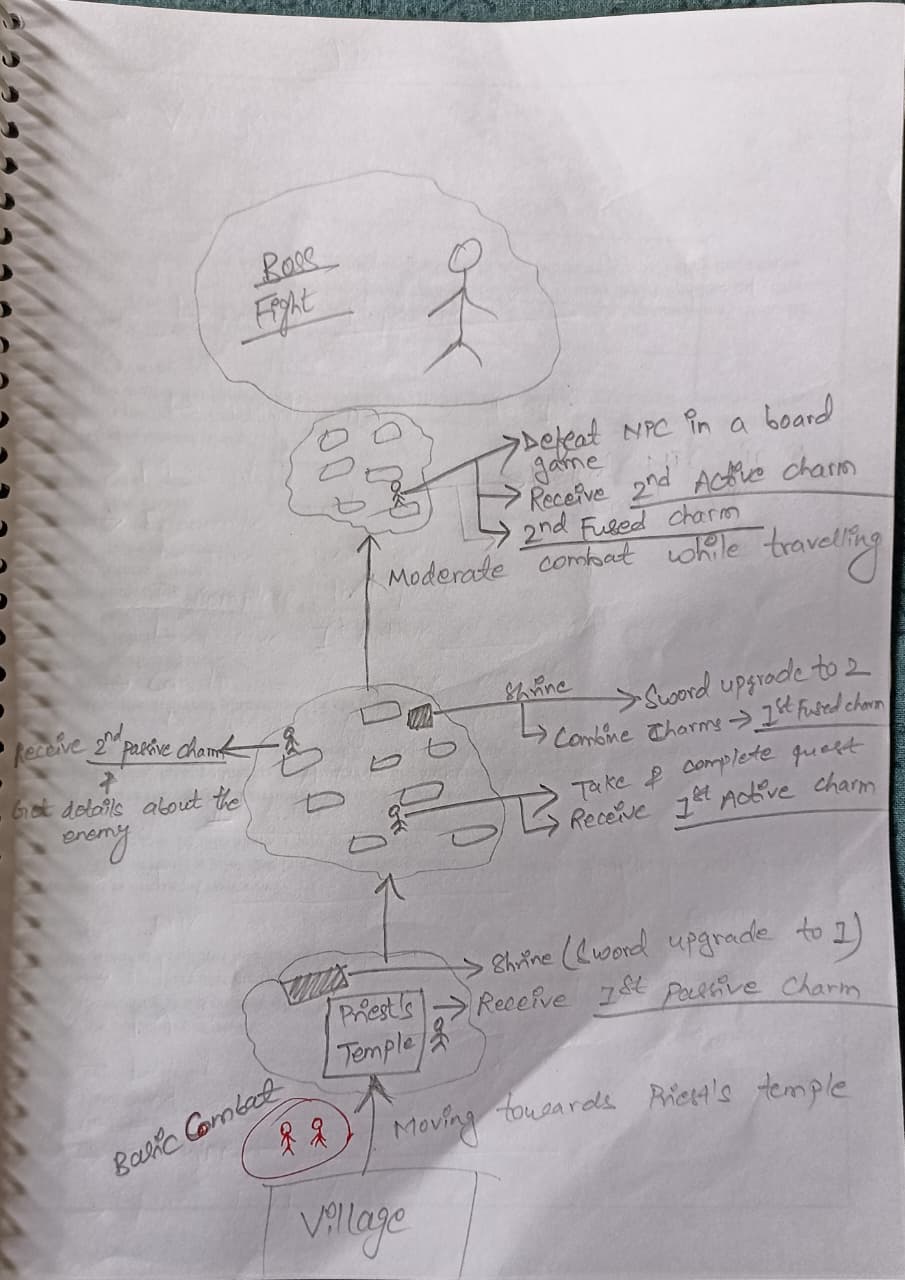 Boss
Fight
Defeat NPC in a board
game
Receive 2nd Active charm
2nd Fused charm
Moderate combat while travelling
Shrine
Sword upgrade to 2
Combine Charms → 1st Fused charm
Receive 2nd passive charm
Get details about the
enemy
Take & complete quest
Receive 1st Active charm
Shrine (Sword upgrade to 1)
Priest's
Temple
Receive 1st Passive Charm
Basic Combat
Moving towards Priest's temple
Village